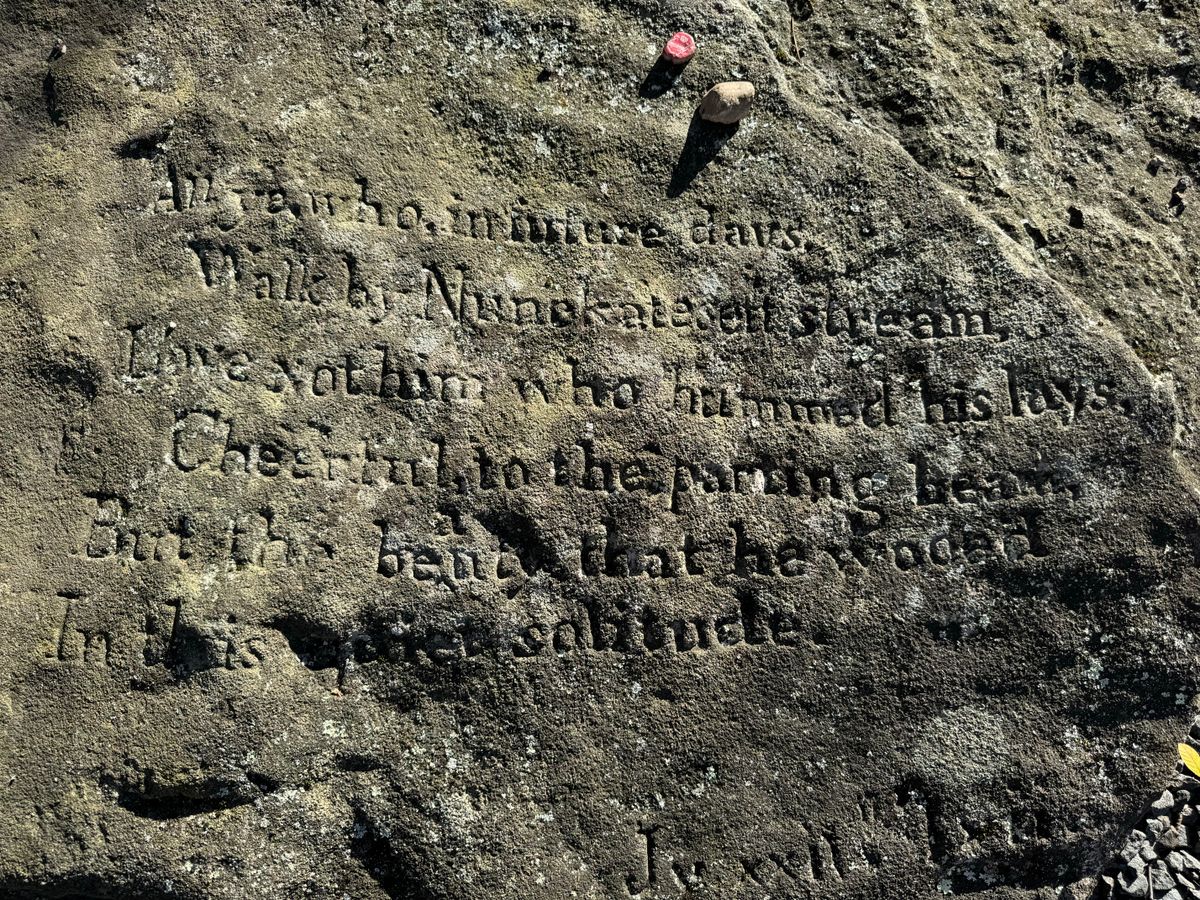 All ye, who, in future days,
Walk by Nunckatesett stream,
Love not him who hummed his lays,
Cheerful, to the parting beam,
But the beauty that he wooed
In this quiet solitude